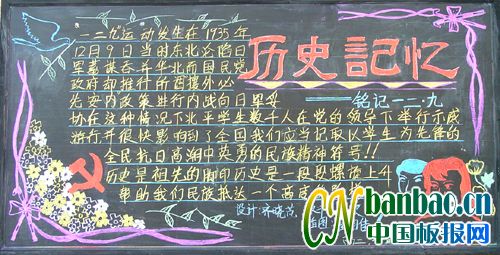 一二九运动发生在1935年
12月9日当时东北沦陷日
军蓄谋吞并华北而国民党
政府却推行所谓攘外必
先安内政策进行内战向日妥
协在这种情况下北平学生数千人在党的领导下举行示威
游行并很快影响到了全国我们应当记取以学生为先锋的
全民抗日高潮中英勇的民族精神符号!!
历史是祖先的脚印历史是一段段螺旋上升
帮助我们民族抵达一个高度
历史記忆
——铭记一二·九
设计:
CN banbao.cn
中国板报网